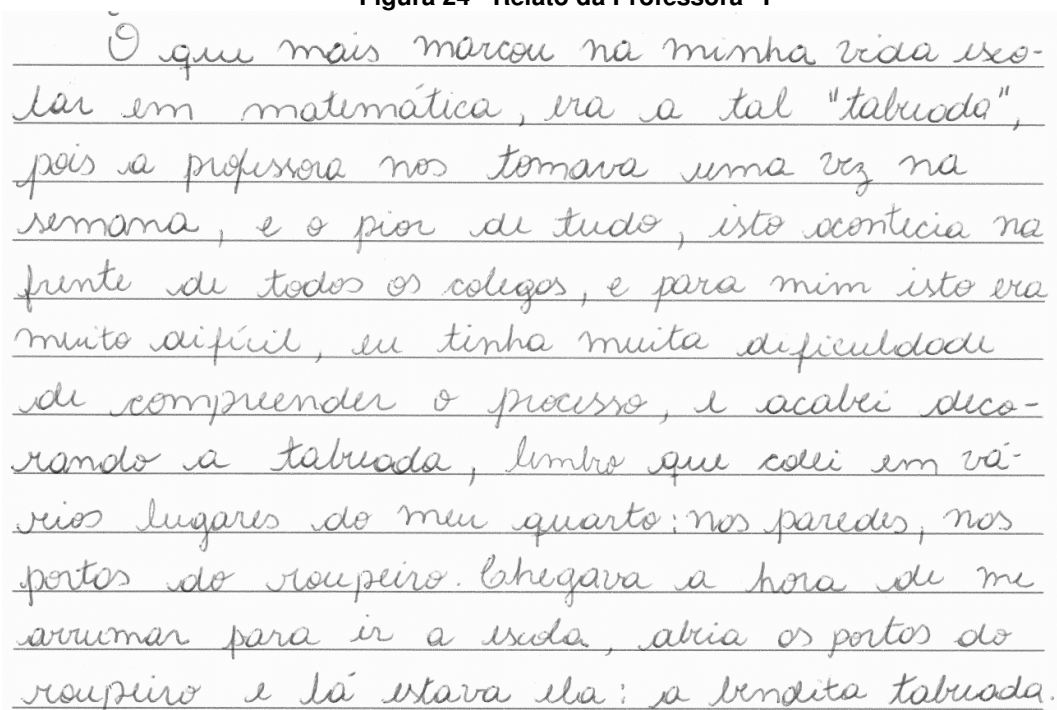 Figura 24 - Relato da Professora "I"
O que mais marcou na minha vida esco-
lar em matemática, era a tal "tabuada",
pois a professora nos tomava uma vez na
semana, e o pior de tudo, isto acontecia na
frente de todos os colegas, e para mim isto era
muito difícil, eu tinha muita dificuldade
de compreender o processo, e acabei deco-
rando a tabuada, lembro que colei em vá-
rios lugares do meu quarto: nas paredes, nas
portas do roupeiro. Chegava a hora de me
arrumar para ir a escola, abria as portas do
roupeiro e lá estava ela: a bendita tabuada.